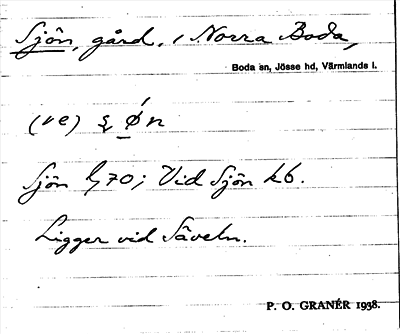 Sjön, gård, i Norra Boda,
Boda sn, Jösse hd, Värmlands l.
(ve)
Sjön 70; Vid Sjön kb.
Ligger vid Säveln.
P. O. GRANÉR 1938.